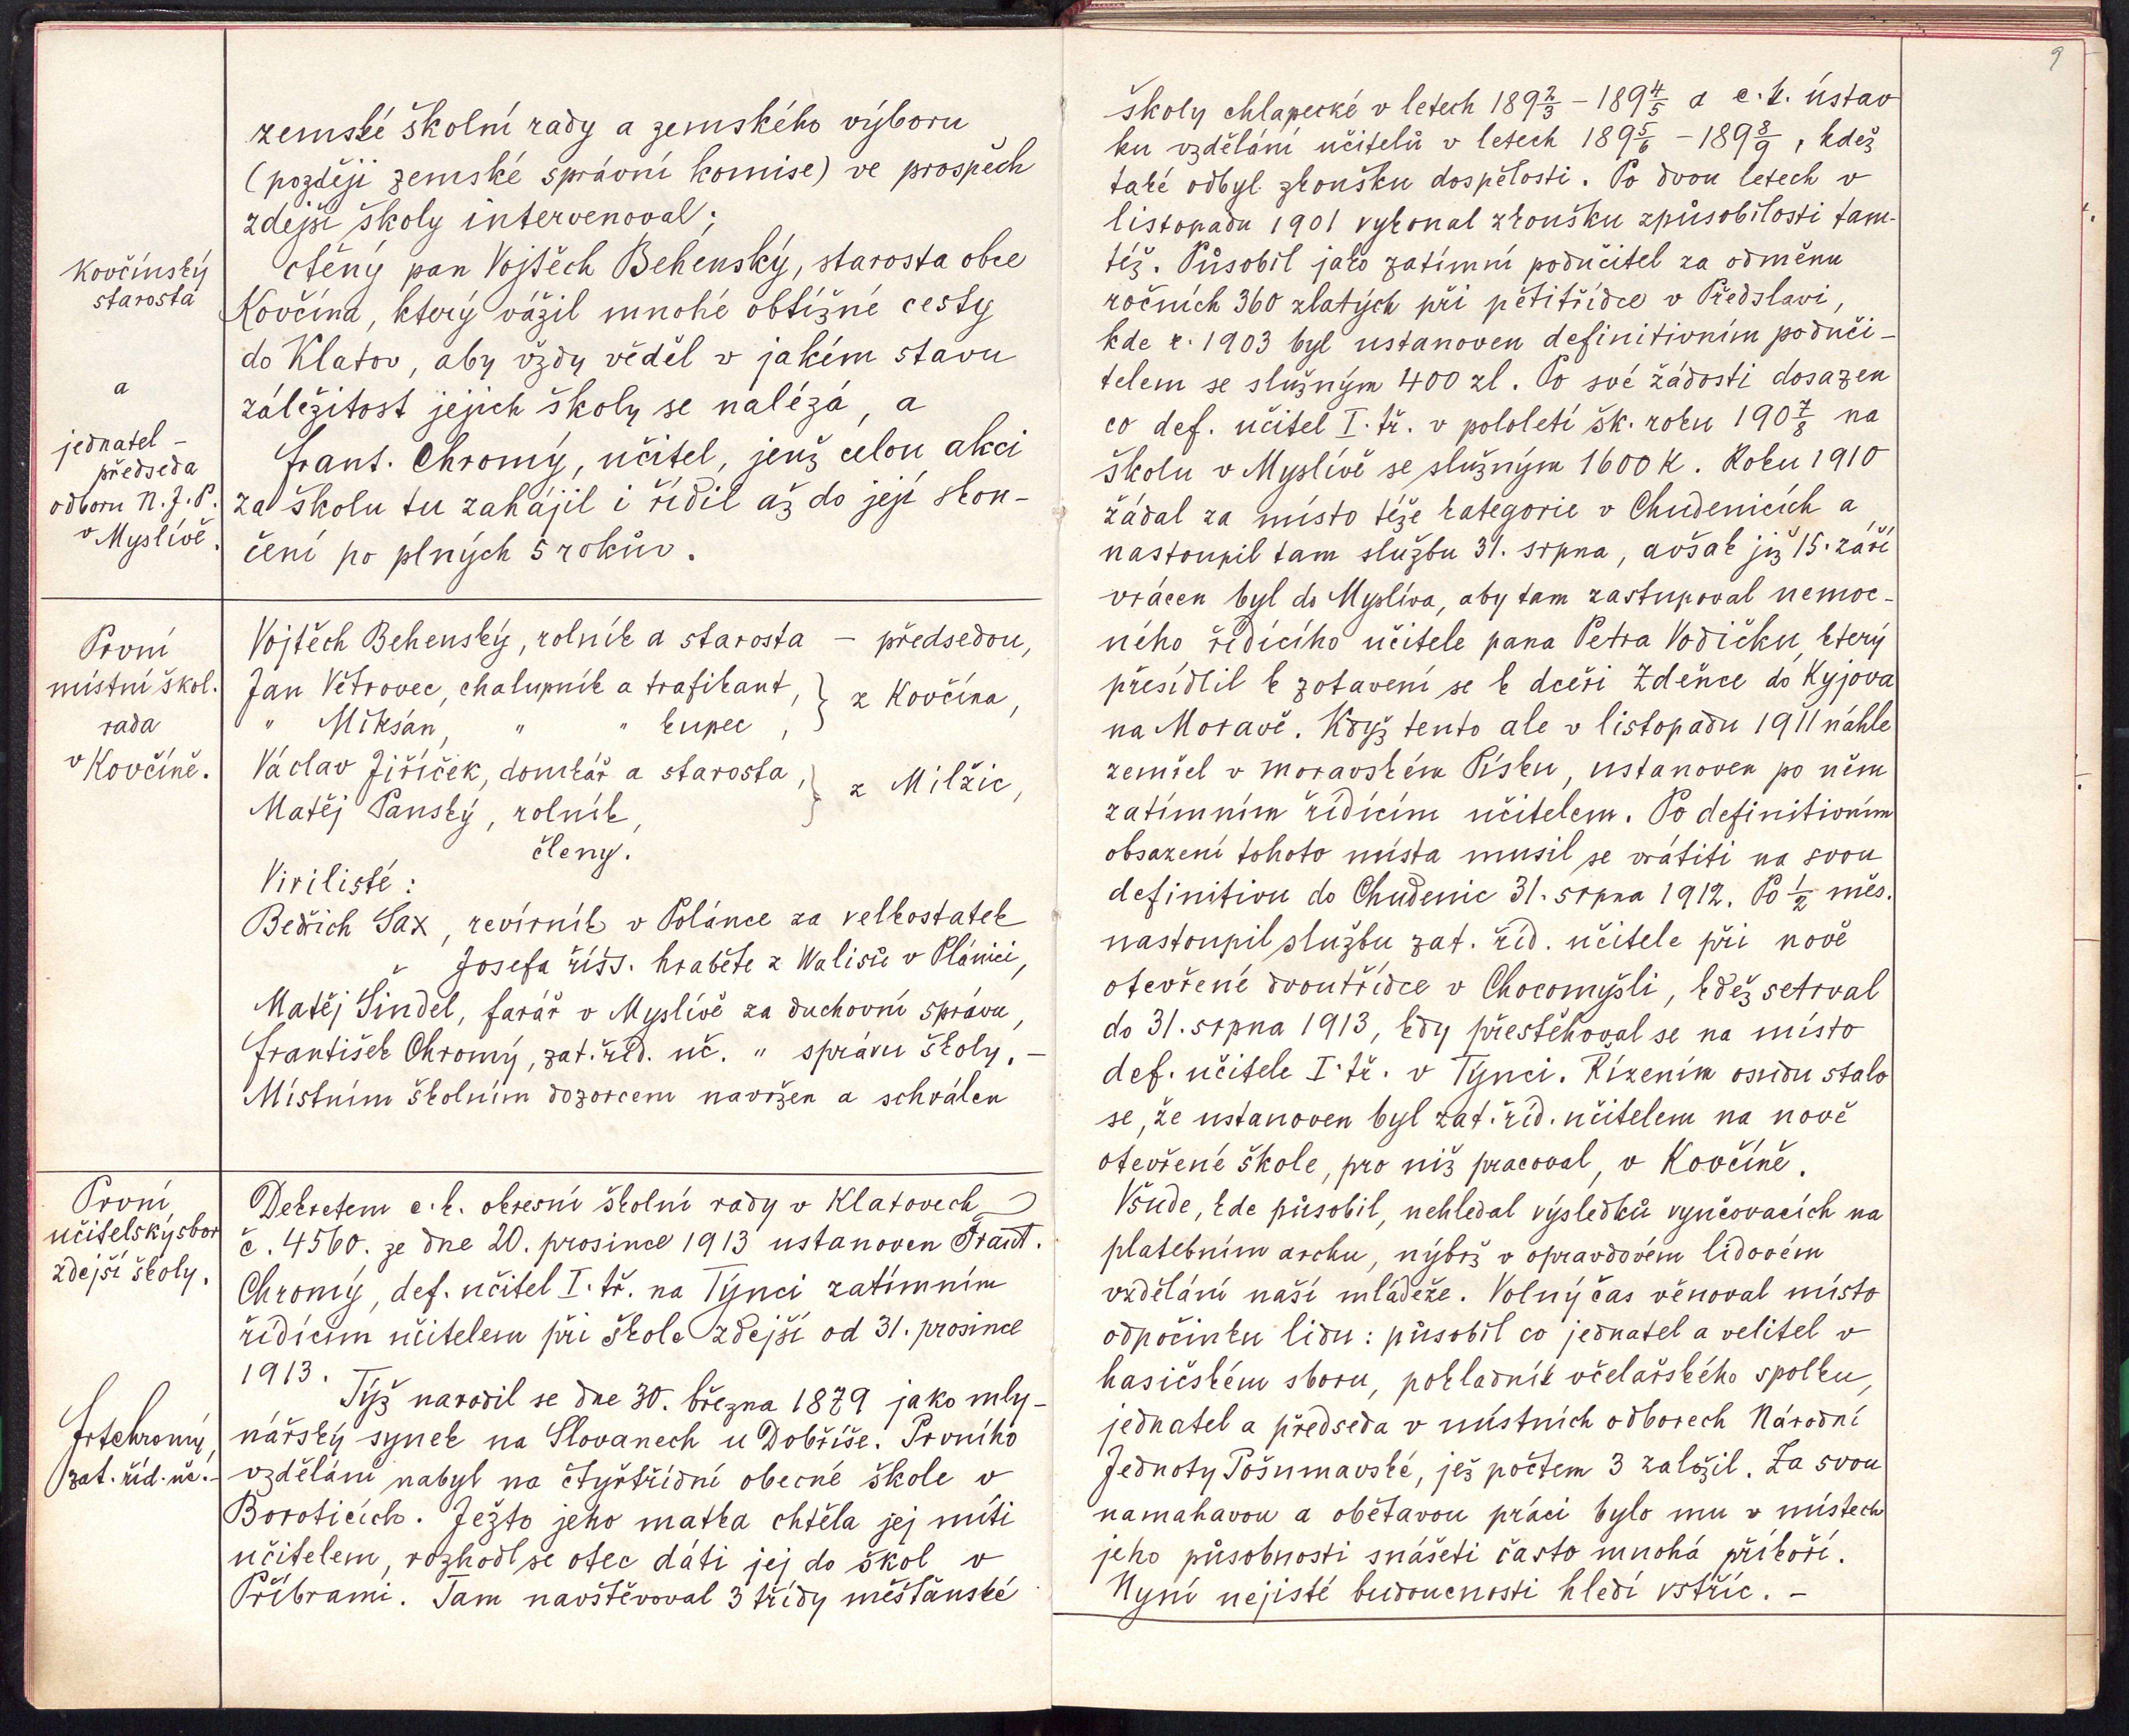 zemské školní rady a zemského výboru
(později zemské správní komise) ve prospěch
zdejší školy intervenoval;
Kovčínský
starosta
ctěný pan Vojtěch Behenský, starosta obce
Kovčína, který vážil mnohé obtížné cesty
do Klatov, aby vždy věděl v jakém stavu
a
záležitost jejich školy se nalézá, a
jednatel -
předseda
odboru N. J. P.
v Myslívě.
Frant. Chromý, učitel, jenž celou akci
za školu tu zahájil i řídil až do její skon-
čení po plných 5 rokův.
První
místní škol.
rada
v Kovčíně.
Vojtěch Behenský, rolník a starosta - předsedou,
Jan Větrovec, chalupník a trafikant, } z Kovčína,
" Mikšán, " " kupec,
Václav Jiříček, domkář a starosta, } z Milžic,
Matěj Panský, rolník,
členy.
Virilisté:
Bedřich Sax, revírník v Polánce za velkostatek
Josefa říšs. hraběte z Walisů v Plánici,
Matěj Šindel, farář v Myslívě za duchovní správu,
František Chromý, zat. říd. uč. " správu školy. -
Místním školním dozorcem navržen a schválen
První
učitelský sbor
zdejší školy.
Dekretem c. k. okresní školní rady v Klatovech
č. 4560. ze dne 20. prosince 1913 ustanoven Frant.
Chromý, def. učitel I. tř. na Týnci zatímním
řídícím učitelem při škole zdejší od 31. prosince
1913.
Frtchromý,
zat. říd. uč. -
Týž narodil se dne 30. března 1879 jako mly-
nářský synek na Slovanech u Dobříše. Prvního
vzdělání nabyl na čtyřtřídní obecné škole v
Boroticích. Ježto jeho matka chtěla jej míti
učitelem, rozhodl se otec dáti jej do škol v
Příbrami. Tam navštěvoval 3 třídy měšťanské
9
školy chlapecké v letech 189 2/3 - 189 4/5 a c. k. ústav
ku vzdělání učitelů v letech 189 5/6 - 189 8/9, kdež
také odbyl zkoušku dospělosti. Po dvou letech v
listopadu 1901 vykonal zkoušku způsobilosti tam-
též. Působil jako zatímní podučitel za odměnu
ročních 360 zlatých při pětitřídce v Předslavi,
kde r. 1903 byl ustanoven definitivním poduči-
telem se služným 400 zl. Po své žádosti dosazen
co def. učitel I. tř. v pololetí šk. roku 190 7/8 na
školu v Myslívě se služným 1600 K. Roku 1910
žádal za místo téže kategorie v Chudenicích a
nastoupil tam službu 31. srpna, avšak již 15. září
vrácen byl do Myslíva, aby tam zastupoval nemoc-
ného řídícího učitele pana Petra Vodičku, který
přesídlil k zotavení se k dceři Zdeňce do Kyjova
na Moravě. Když tento ale v listopadu 1911 náhle
zemřel v moravském Písku, ustanoven po něm
zatímním řídícím učitelem. Po definitivním
obsazení tohoto místa musil se vrátiti na svou
definitivu do Chudenic 31. srpna 1912. Po 1/2 měs.
nastoupil službu zat. říd. učitele při nově
otevřené dvoutřídce v Chocomyšli, kdež setrval
do 31. srpna 1913, kdy přestěhoval se na místo
def. učitele I. tř. v Týnci. Řízením osudu stalo
se, že ustanoven byl zat. říd. učitelem na nově
otevřené škole, pro niž pracoval, v Kovčíně.
Všude, kde působil, nehledal výsledků vyučovacích na
platebním archu, nýbrž v opravdovém lidovém
vzdělání naší mládeže. Volný čas věnoval místo
odpočinku lidu: působil co jednatel a velitel v
hasičském sboru, pokladník včelařského spolku,
jednatel a předseda v místních odborech Národní
Jednoty Pošumavské, jež počtem 3 založil. Za svou
namahavou a obětavou práci bylo mu v místech
jeho působnosti snášeti často mnohá příkoří.
Nyní nejisté budoucnosti hledí vstříc. -